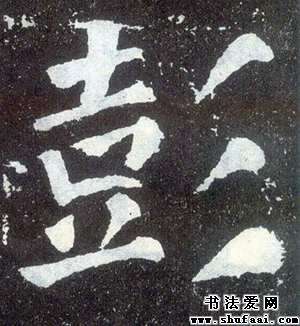 彭
书法爱网
www.shufaai.com